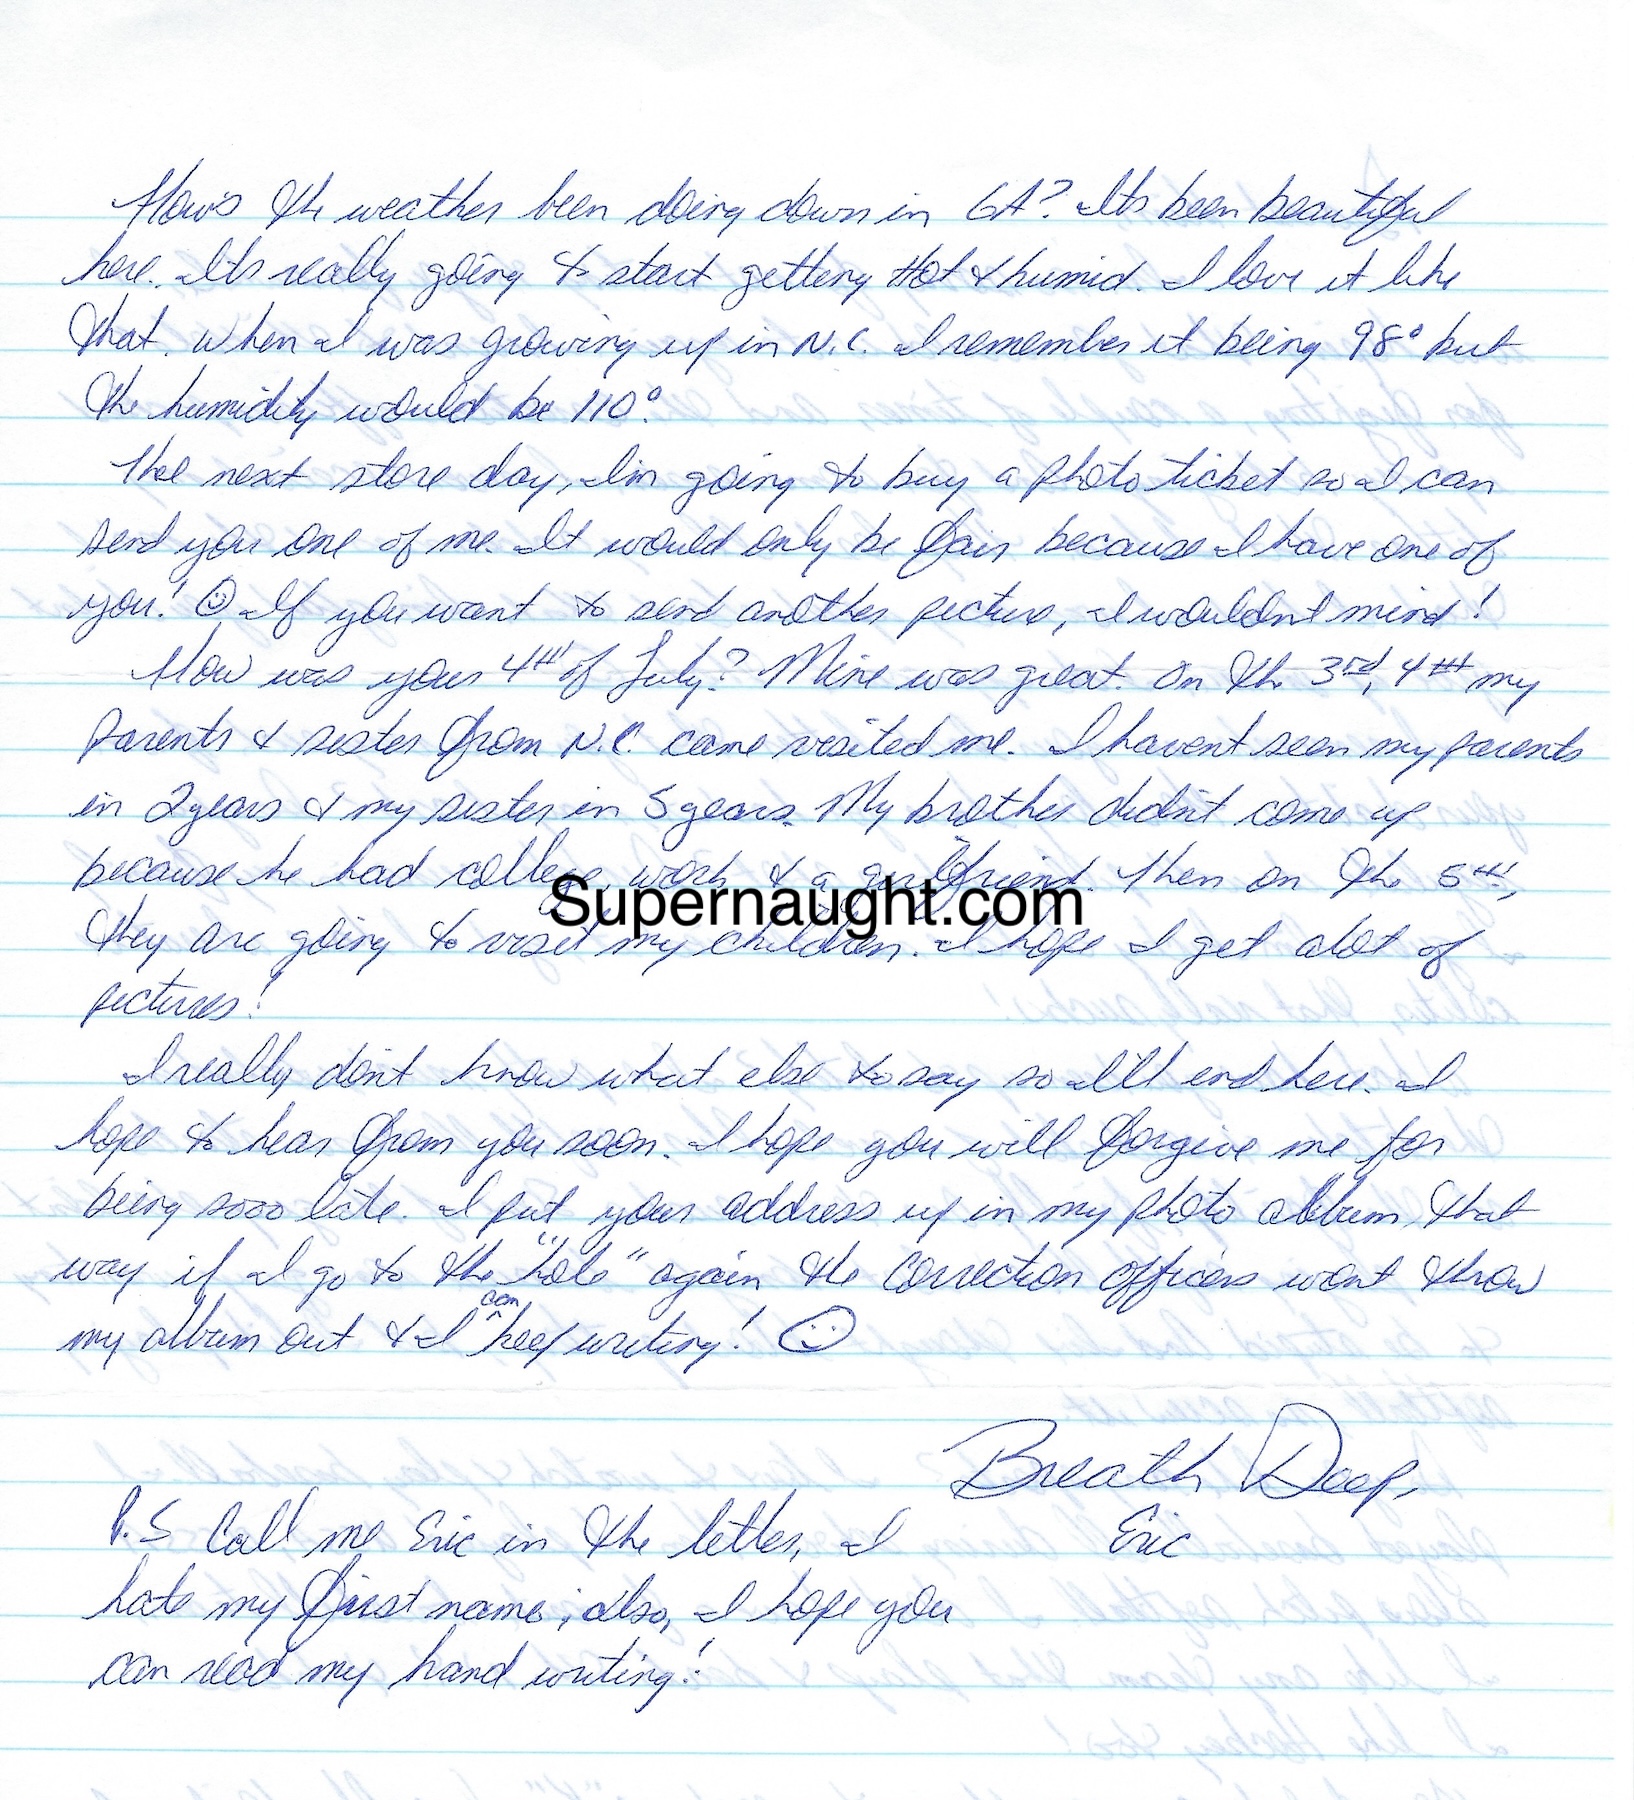 How's the weather been doing down in GA? Its been beautiful
here. Its really going to start getting Hot & humid. I love it like
that. When I was growing up in N.C. I remember it being 98° but
the humidity would be 110°.
The next store day, Im going to buy a photo ticket so I can
send you one of me. It would only be fair because I have one of
you! ☺ If you want to send another picture, I wouldn't mind!
How was your 4th of July? Mine was great. On the 3rd, 4th my
parents & sister from N.C. came visited me. I havent seen my parents
in 2 years & my sister in 5 years. My brother didn't come up
because he had college, work & a girlfriend. Then on the 5th,
Supernaught.com
they are going to visit my children. I hope I get alot of
pictures!
I really don't know what else to say so I'll end here. I
hope to hear from you soon. I hope you will forgive me for
being sooo late. I put your address up in my photo album, that
way if I go to the "hole" again the Correction officers wont throw
my album out & I can keep writing! ☺
Breath Deep,
Eric
P.S Call me Eric in the letter, I
hate my first name; also, I hope you
can read my hand writing!